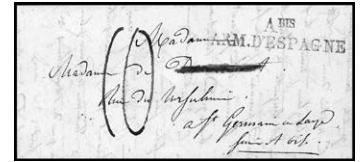 A BIS
ARM. D'ESPAGNE
Madame
Madame de
Rue des Ursulines
a St Germain en Laye
Seine et Oise